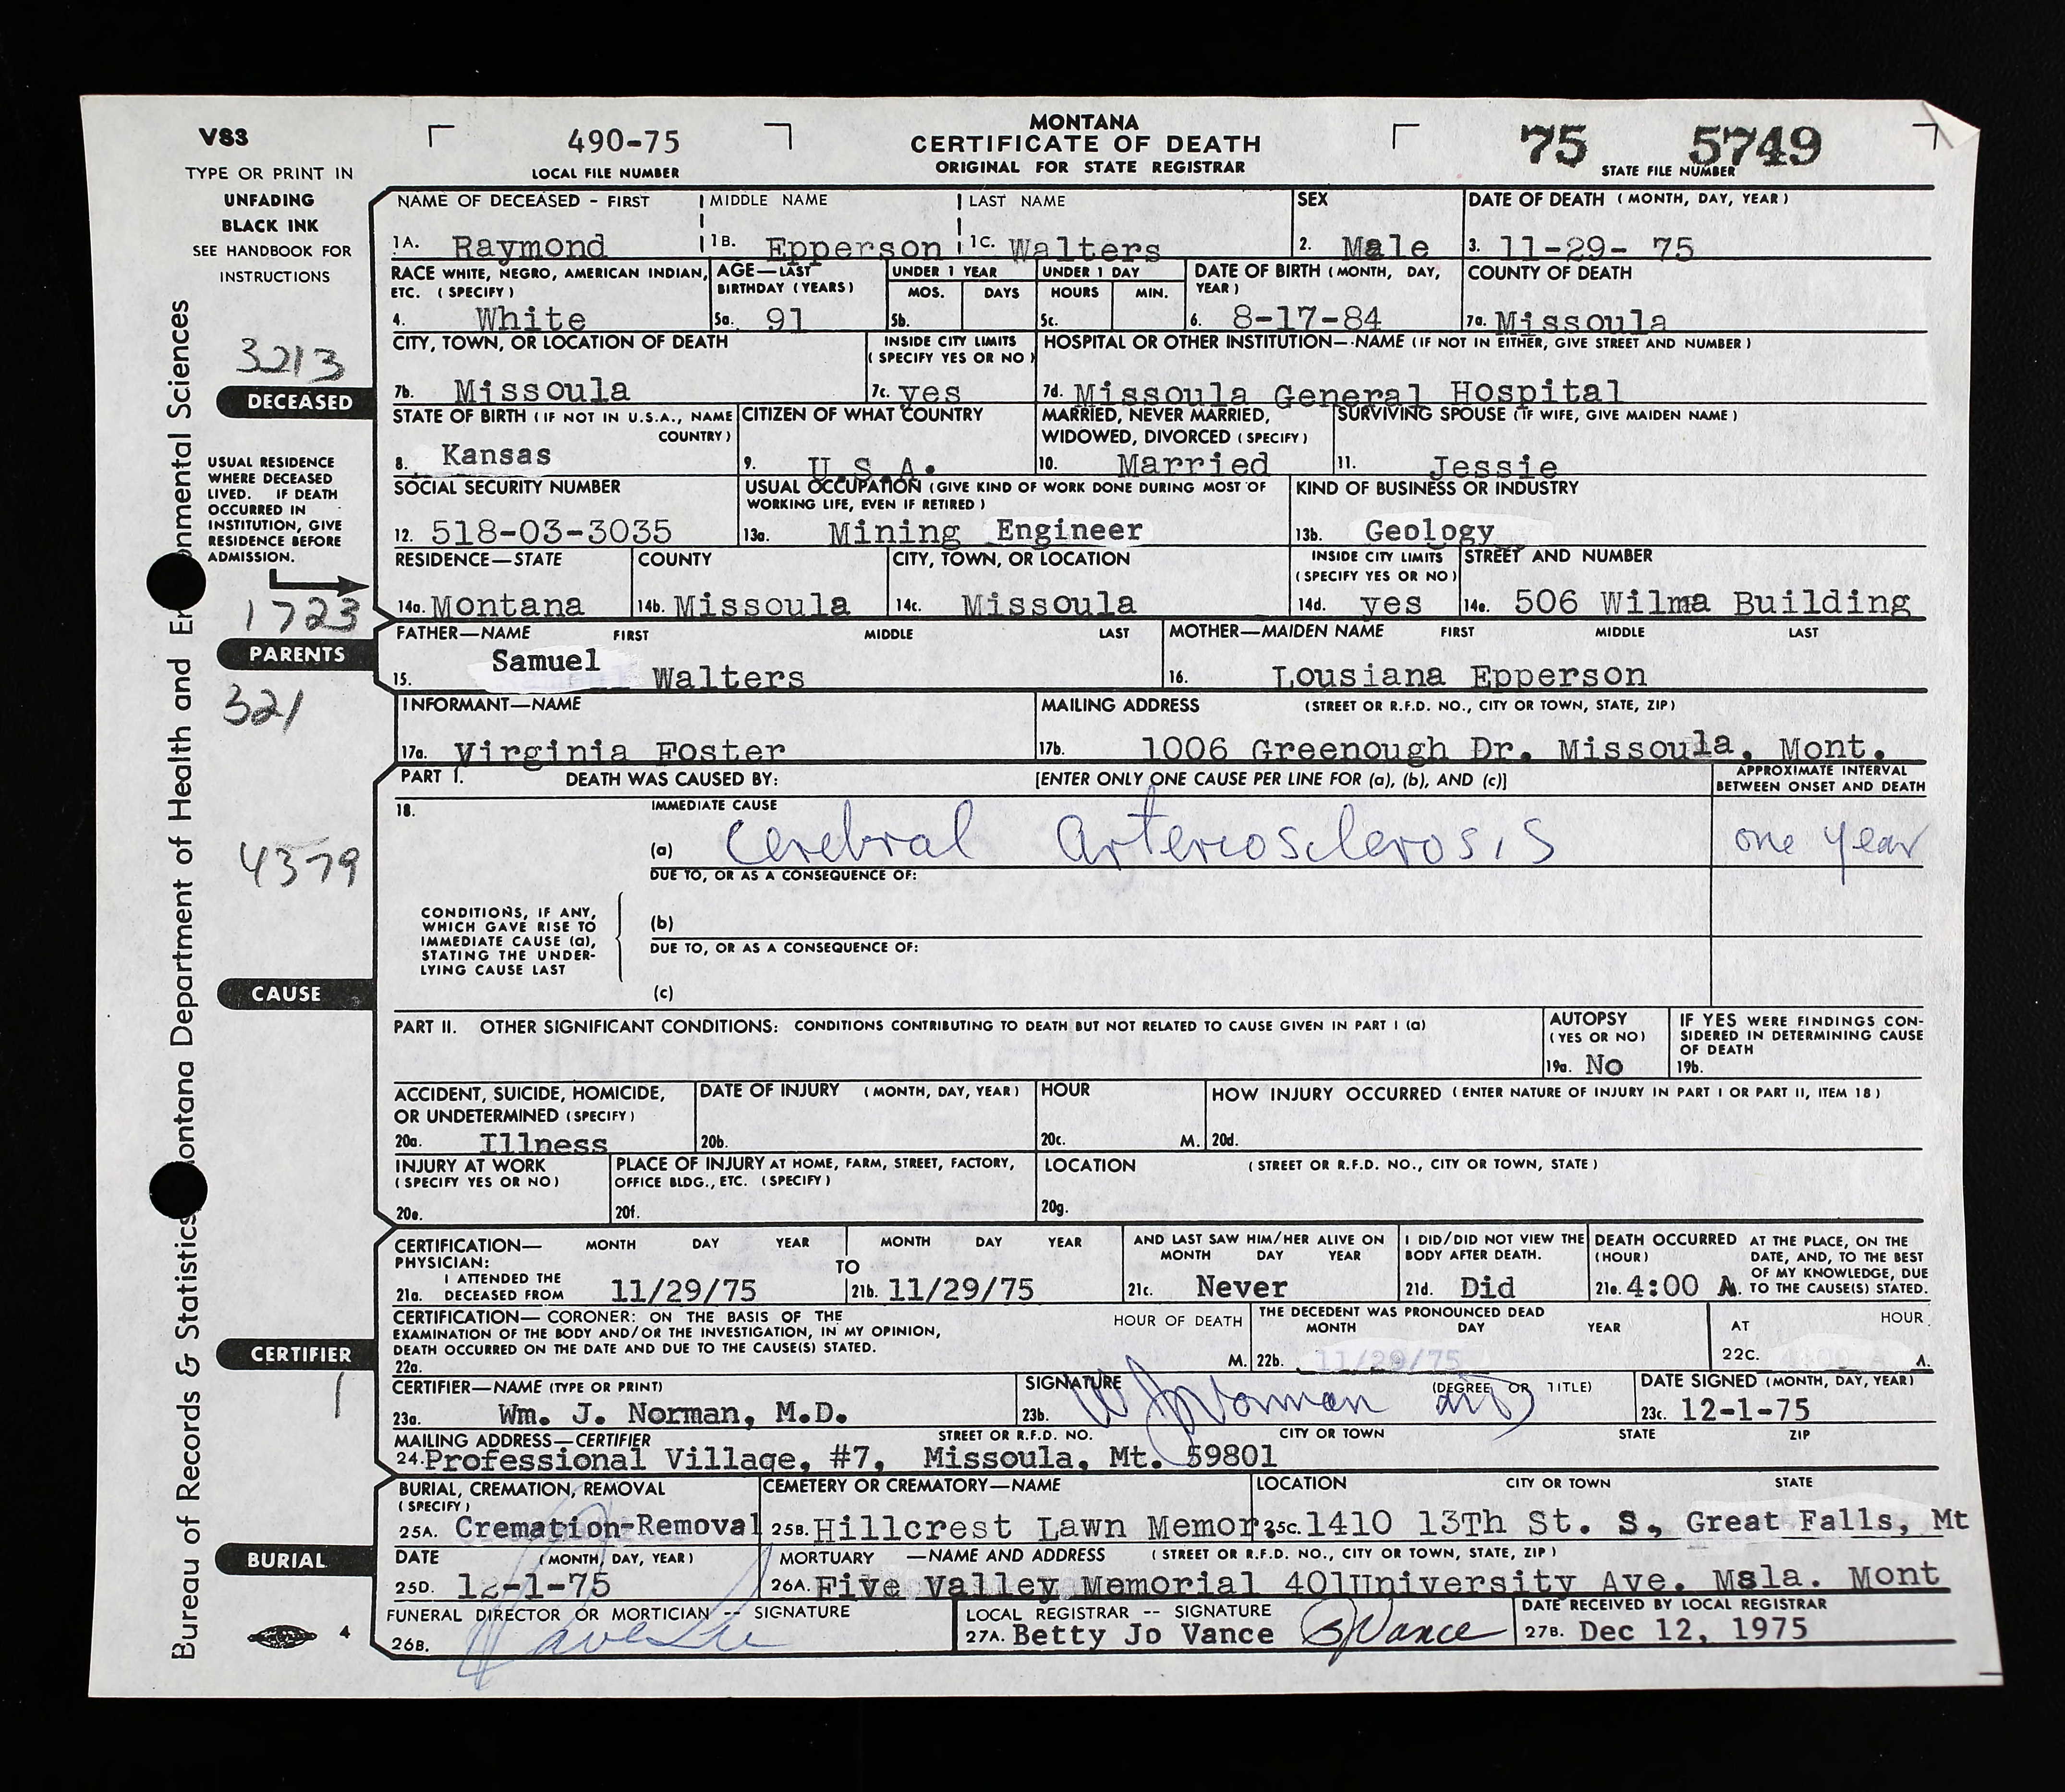 VS3
490-75
LOCAL FILE NUMBER
MONTANA
CERTIFICATE OF DEATH
ORIGINAL FOR STATE REGISTRAR
75 5749
STATE FILE NUMBER
TYPE OR PRINT IN
UNFADING
BLACK INK
SEE HANDBOOK FOR
INSTRUCTIONS
NAME OF DECEASED - FIRST MIDDLE NAME LAST NAME SEX DATE OF DEATH (MONTH, DAY, YEAR)
1A. Raymond 1B. Epperson 1C. Walters 2. Male 3. 11-29- 75
RACE WHITE, NEGRO, AMERICAN INDIAN, ETC. (SPECIFY)
4. White
AGE—LAST BIRTHDAY (YEARS)
5a. 91
UNDER 1 YEAR
MOS. DAYS
5b.
UNDER 1 DAY
HOURS MIN.
5c.
DATE OF BIRTH (MONTH, DAY, YEAR)
6. 8-17-84
COUNTY OF DEATH
7a. Missoula
3213
DECEASED
CITY, TOWN, OR LOCATION OF DEATH
7b. Missoula
INSIDE CITY LIMITS (SPECIFY YES OR NO)
7c. yes
HOSPITAL OR OTHER INSTITUTION—NAME (IF NOT IN EITHER, GIVE STREET AND NUMBER)
7d. Missoula General Hospital
STATE OF BIRTH (IF NOT IN U.S.A., NAME COUNTRY)
8. Kansas
CITIZEN OF WHAT COUNTRY
9. U.S.A.
MARRIED, NEVER MARRIED, WIDOWED, DIVORCED (SPECIFY)
10. Married
SURVIVING SPOUSE (IF WIFE, GIVE MAIDEN NAME)
11. Jessie
USUAL RESIDENCE
WHERE DECEASED
LIVED. IF DEATH
OCCURRED IN
INSTITUTION, GIVE
RESIDENCE BEFORE
ADMISSION.
SOCIAL SECURITY NUMBER
12. 518-03-3035
USUAL OCCUPATION (GIVE KIND OF WORK DONE DURING MOST OF WORKING LIFE, EVEN IF RETIRED)
13a. Mining Engineer
KIND OF BUSINESS OR INDUSTRY
13b. Geology
RESIDENCE—STATE
14a. Montana
COUNTY
14b. Missoula
CITY, TOWN, OR LOCATION
14c. Missoula
INSIDE CITY LIMITS (SPECIFY YES OR NO)
14d. yes
STREET AND NUMBER
14e. 506 Wilma Building
1723
PARENTS
321
FATHER—NAME FIRST MIDDLE LAST
15. Samuel Walters
MOTHER—MAIDEN NAME FIRST MIDDLE LAST
16. Lousiana Epperson
INFORMANT—NAME
17a. Virginia Foster
MAILING ADDRESS (STREET OR R.F.D. NO., CITY OR TOWN, STATE, ZIP)
17b. 1006 Greenough Dr. Missoula, Mont.
PART I. DEATH WAS CAUSED BY: [ENTER ONLY ONE CAUSE PER LINE FOR (a), (b), AND (c)]
APPROXIMATE INTERVAL
BETWEEN ONSET AND DEATH
18. IMMEDIATE CAUSE
(a) Cerebral Arteriosclerosis one year
4379
DUE TO, OR AS A CONSEQUENCE OF:
CONDITIONS, IF ANY,
WHICH GAVE RISE TO
IMMEDIATE CAUSE (a),
STATING THE UNDER-
LYING CAUSE LAST
(b)
DUE TO, OR AS A CONSEQUENCE OF:
(c)
CAUSE
PART II. OTHER SIGNIFICANT CONDITIONS: CONDITIONS CONTRIBUTING TO DEATH BUT NOT RELATED TO CAUSE GIVEN IN PART I (a)
AUTOPSY
(YES OR NO)
19a. No
IF YES WERE FINDINGS CON-
SIDERED IN DETERMINING CAUSE
OF DEATH
19b.
ACCIDENT, SUICIDE, HOMICIDE,
OR UNDETERMINED (SPECIFY)
20a. Illness
DATE OF INJURY (MONTH, DAY, YEAR)
20b.
HOUR
20c. M.
HOW INJURY OCCURRED (ENTER NATURE OF INJURY IN PART I OR PART II, ITEM 18)
20d.
INJURY AT WORK
(SPECIFY YES OR NO)
20e.
PLACE OF INJURY AT HOME, FARM, STREET, FACTORY,
OFFICE BLDG., ETC. (SPECIFY)
20f.
LOCATION (STREET OR R.F.D. NO., CITY OR TOWN, STATE)
20g.
CERTIFICATION— PHYSICIAN: MONTH DAY YEAR TO MONTH DAY YEAR
I ATTENDED THE
21a. DECEASED FROM 11/29/75 21b. 11/29/75
AND LAST SAW HIM/HER ALIVE ON
MONTH DAY YEAR
21c. Never
I DID/DID NOT VIEW THE
BODY AFTER DEATH.
21d. Did
DEATH OCCURRED
(HOUR)
21e. 4:00 A.
AT THE PLACE, ON THE
DATE, AND, TO THE BEST
OF MY KNOWLEDGE, DUE
TO THE CAUSE(S) STATED.
CERTIFICATION— CORONER: ON THE BASIS OF THE
EXAMINATION OF THE BODY AND/OR THE INVESTIGATION, IN MY OPINION,
DEATH OCCURRED ON THE DATE AND DUE TO THE CAUSE(S) STATED.
22a. HOUR OF DEATH M.
THE DECEDENT WAS PRONOUNCED DEAD
MONTH DAY YEAR
22b. 11/29/75
AT HOUR
22C. A.
CERTIFIER
1
CERTIFIER—NAME (TYPE OR PRINT)
23a. Wm. J. Norman, M.D.
SIGNATURE (DEGREE OR TITLE)
23b. W J Norman MD
DATE SIGNED (MONTH, DAY, YEAR)
23c. 12-1-75
MAILING ADDRESS—CERTIFIER STREET OR R.F.D. NO. CITY OR TOWN STATE ZIP
24. Professional Village, #7, Missoula, Mt. 59801
BURIAL, CREMATION, REMOVAL
(SPECIFY)
25A. Cremation-Removal
CEMETERY OR CREMATORY—NAME
25B. Hillcrest Lawn Memor
LOCATION CITY OR TOWN STATE
25C. 1410 13Th St. S, Great Falls, Mt
BURIAL
DATE (MONTH, DAY, YEAR)
25D. 12-1-75
MORTUARY —NAME AND ADDRESS (STREET OR R.F.D. NO., CITY OR TOWN, STATE, ZIP)
26A. Five Valley Memorial 401University Ave. Msla. Mont
FUNERAL DIRECTOR OR MORTICIAN -- SIGNATURE
26B.
LOCAL REGISTRAR -- SIGNATURE
27A. Betty Jo Vance BJVance
DATE RECEIVED BY LOCAL REGISTRAR
27B. Dec 12, 1975
4
Bureau of Records & Statistics ontana Department of Health and En onmental Sciences